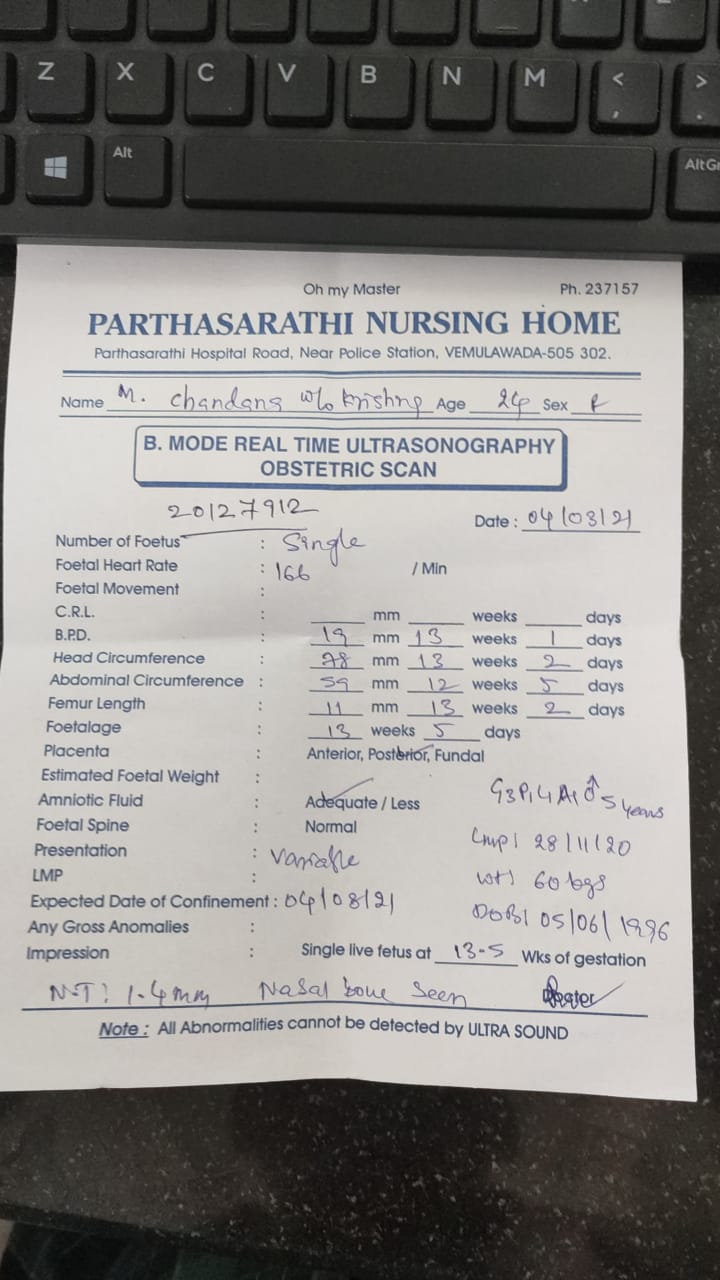 Z X C V B N M < , > .
Alt AltGr
Oh my Master Ph. 237157
PARTHASARATHI NURSING HOME
Parthasarathi Hospital Road, Near Police Station, VEMULAWADA-505 302.
Name M. Chandana w/o Krishna Age 24 Sex F
B. MODE REAL TIME ULTRASONOGRAPHY
OBSTETRIC SCAN
20127912
Date : 04/03/21
Number of Foetus : Single
Foetal Heart Rate : 166 / Min
Foetal Movement :
C.R.L. : mm weeks days
B.P.D. : 19 mm 13 weeks 1 days
Head Circumference : 78 mm 13 weeks 2 days
Abdominal Circumference : 59 mm 12 weeks 5 days
Femur Length : 11 mm 13 weeks 2 days
Foetalage : 13 weeks 5 days
Placenta : Anterior, Posterior, Fundal
Estimated Foetal Weight :
Amniotic Fluid : Adequate / Less
G3P1L1A1 ♂ 5 years
Foetal Spine : Normal
Lmp| 28/11/20
Presentation : Variable
LMP :
wt| 60 kgs
Expected Date of Confinement : 04/08/21
DOB| 05/06/1996
Any Gross Anomalies :
Impression : Single live fetus at 13-5 Wks of gestation
N.T: 1.4mm Nasal bone Seen
Note : All Abnormalities cannot be detected by ULTRA SOUND